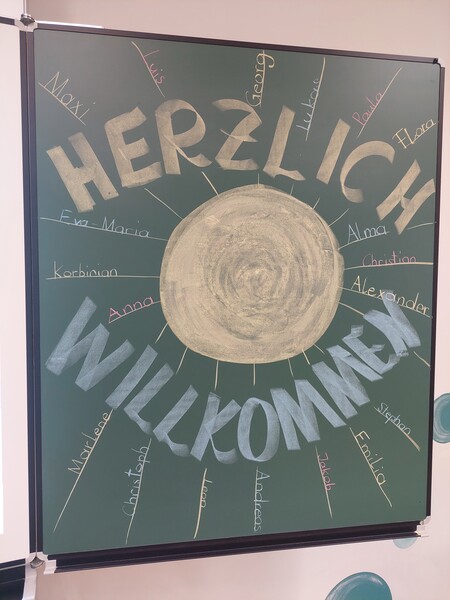 HERZLICH
WILLKOMMEN
Maxi
Luis
Georg
Lukas
Paula
Flora
Eva-Maria
Alma
Korbinian
Christian
Alexander
Anna
Stephan
Marlene
Christoph
Leon
Andreas
Jakob
Emilia